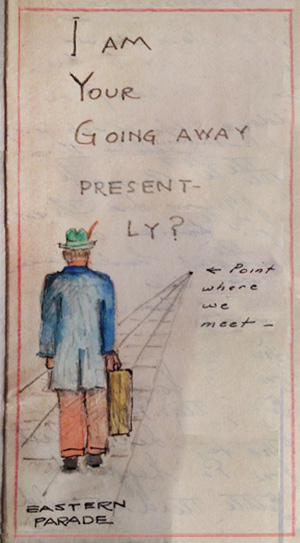 I AM
YOUR
GOING AWAY
PRESENT-
LY?
← Point
where
we
meet –
EASTERN
PARADE